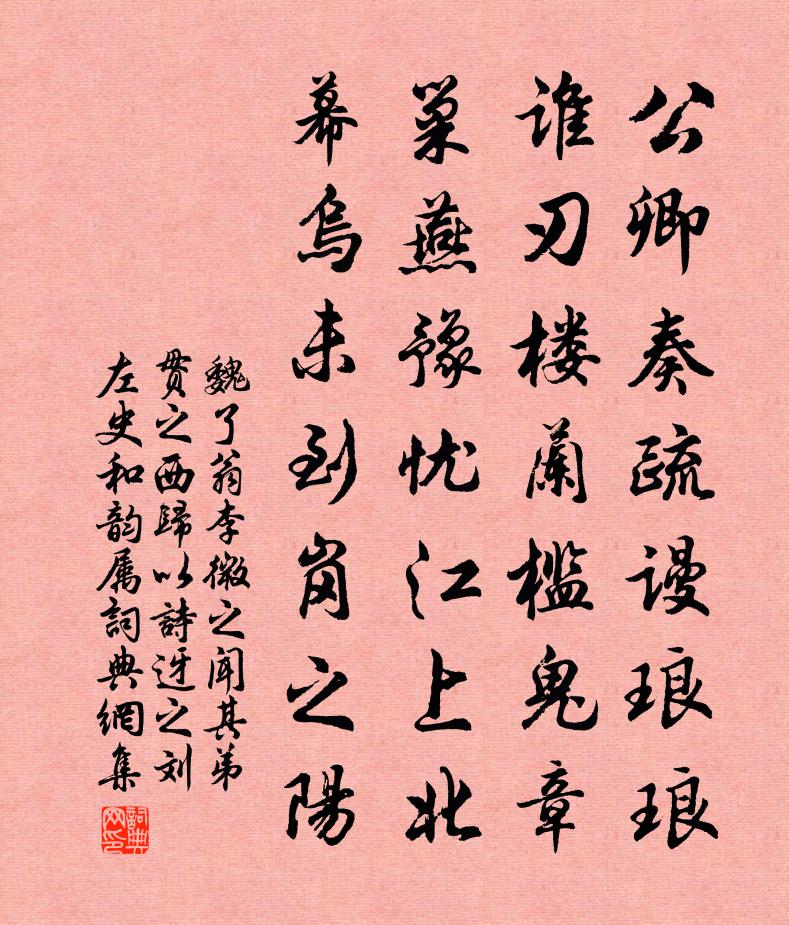 公卿奏疏谩琅琅
谁刃楼蘭槛鬼章
巢燕豫忧江上北
幕烏未到岗之陽
魏了翁李微之闻其弟
贯之西歸以詩迓之刘
左史和韵属詞典網集
詞典网印